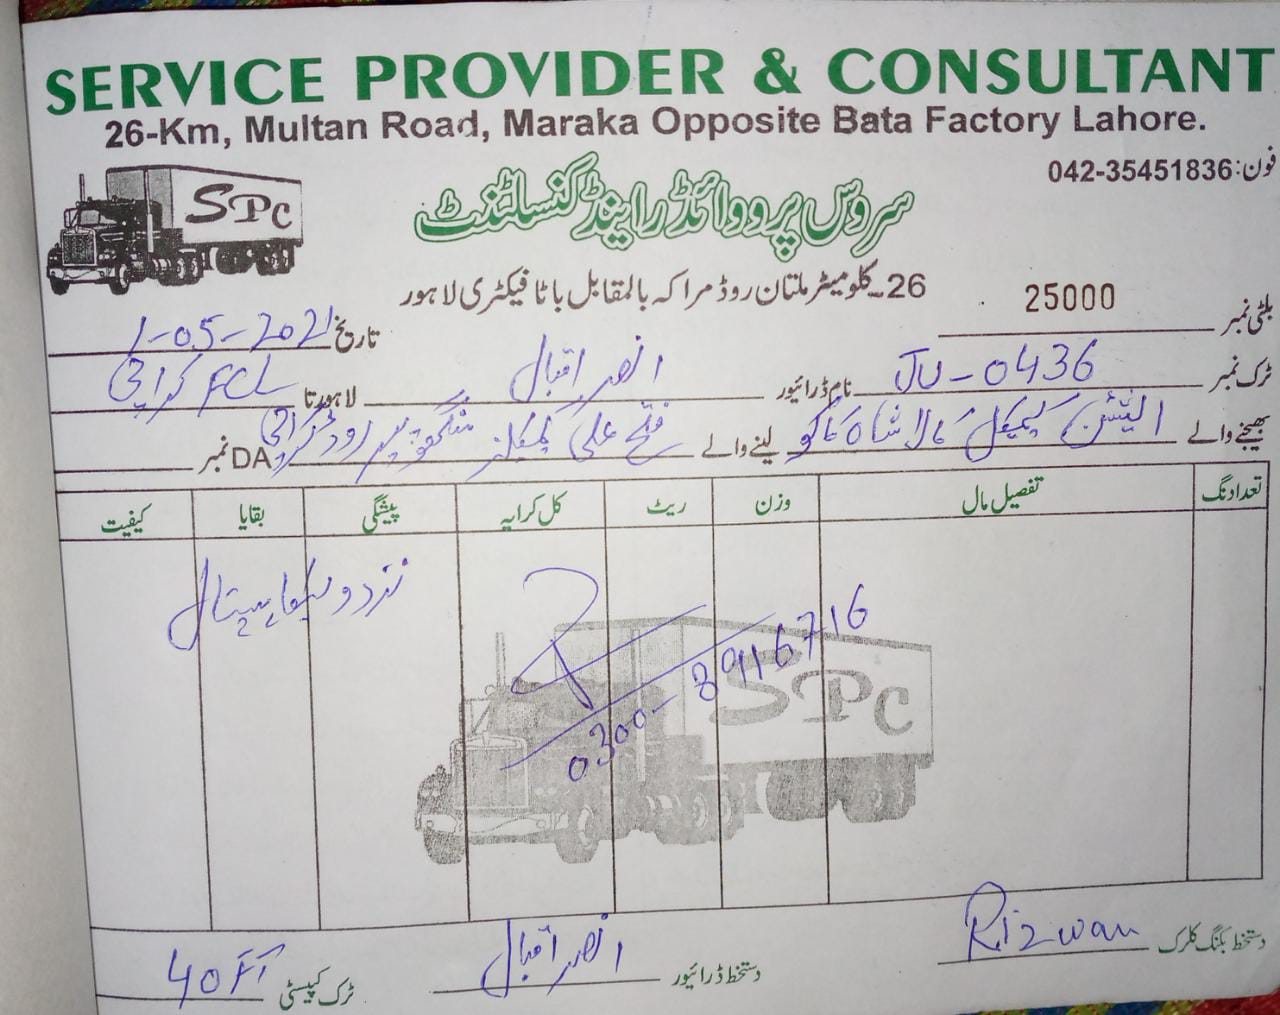 SERVICE PROVIDER & CONSULTANT
26-Km, Multan Road, Maraka Opposite Bata Factory Lahore.
فون:042-35451836
SPC
سروس پرووائڈر اینڈ کنسلٹنٹ
26۔کلومیٹر ملتان روڈ مراکہ بالمقابل باٹا فیکٹری لاہور
بلٹی نمبر 25000 تاریخ 1-05-2021
ٹرک نمبر JU-0436 نام ڈرائیور انصر اقبال لاہور تا FCL کراچی
بھیجنے والے کیمیکل کالا شاہ کاکو لینے والے فتح علی کیمیکلز منگھوپیر روڈ کراچی DA نمبر
تعداد نگ تفصیل مال وزن ریٹ کل کرایہ پیشگی بقایا کیفیت
نزد ولیکا ہسپتال
0300-8916716
SPC
دستخط بکنگ کلرک Rizwan دستخط ڈرائیور انصر اقبال ٹرک کیپسٹی 40 FT